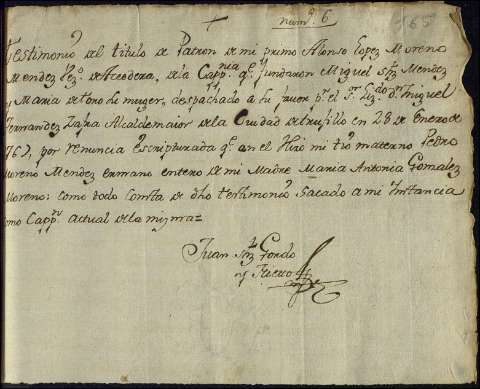 +
num.º 6
165
Testimonio del titulo de Patron de mi primo Alonso Lopez Moreno
Mendez vez.º de Acedera, de la Capp.nia q.e fundaron Miguel Sz Mendez
y Maria de Toro su muger, despachado a su favor p.r el S.r Liz.do d.n Miguel
Fernandez Zafra Alcalde maior de la Ciudad de Trujillo en 28 de Enero de
762, por renuncia Escripturada q.e en el Hizo mi tio materno Pedro
Moreno Mendez ermano entero de mi Madre Maria Antonia Gomalez
Moreno: como todo Consta de dho testimonio Sacado a mi Instancia
como Capp.n actual de la misma=
Juan Sz Gordo
y